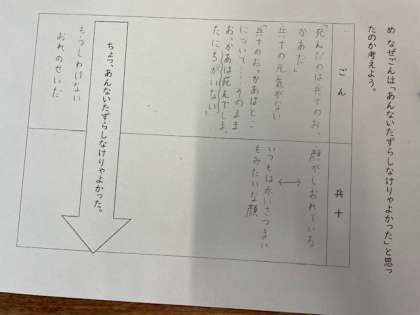 め なぜごんは「あんないたずらしなけりゃよかった」と思っ
たのか考えよう。
ごん
「死んだのは兵十のお、
かあだ」
兵十の元気がない
「兵十のおっかあはとこ
について…そのまま
おっかあは死んでしま
たにちがいない」
兵十
顔がしおれている。
いつもは赤いさつまい
もみたいな顔
ちょっ、あんないたずらしなけりゃよかった。
もうしわけない
おれのせいだ